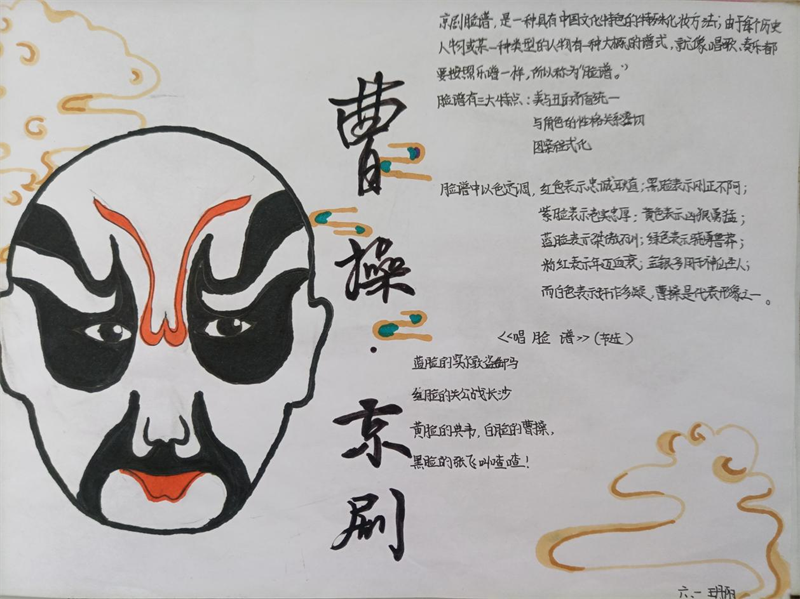 曹操·京剧
京剧脸谱，是一种具有中国文化特色的特殊化妆方法；由于每个历史
人物或某一种类型的人物有一种大概的谱式，就像唱歌、奏乐都
要按照乐谱一样，所以称为“脸谱。”
脸谱有三大特点：美与丑的矛盾统一
与角色的性格关系密切
图案程式化
脸谱中以色定调，红色表示忠诚耿直；黑脸表示刚正不阿；
紫脸表示老实忠厚；黄色表示凶狠勇猛；
蓝脸表示桀傲不训；绿色表示骁勇鲁莽；
粉红表示年迈血衰；金银多用于神仙老人；
而白色表示奸诈多疑，曹操是代表形象之一。
<<唱脸谱>>（节选）
蓝脸的窦尔敦盗御马
红脸的关公战长沙
黄脸的典韦，白脸的曹操，
黑脸的张飞叫喳喳！
六、一